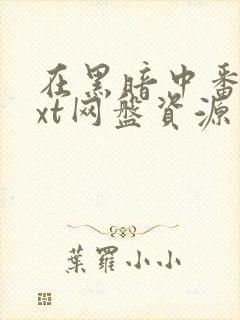 在黑暗中番
xt网盘资源
葉羅小小